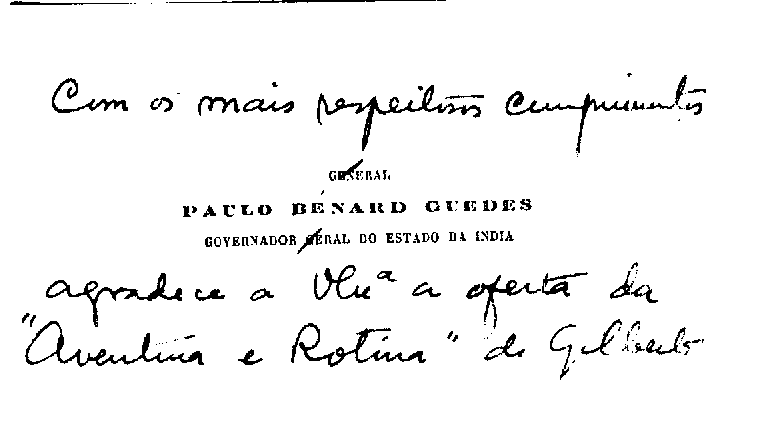 Com os mais respeitosos cumprimentos
GENERAL
PAULO BÉNARD GUEDES
GOVERNADOR GERAL DO ESTADO DA INDIA
agradece a V. Exª a oferta da
"Aventura e Rotina" de Gilberto